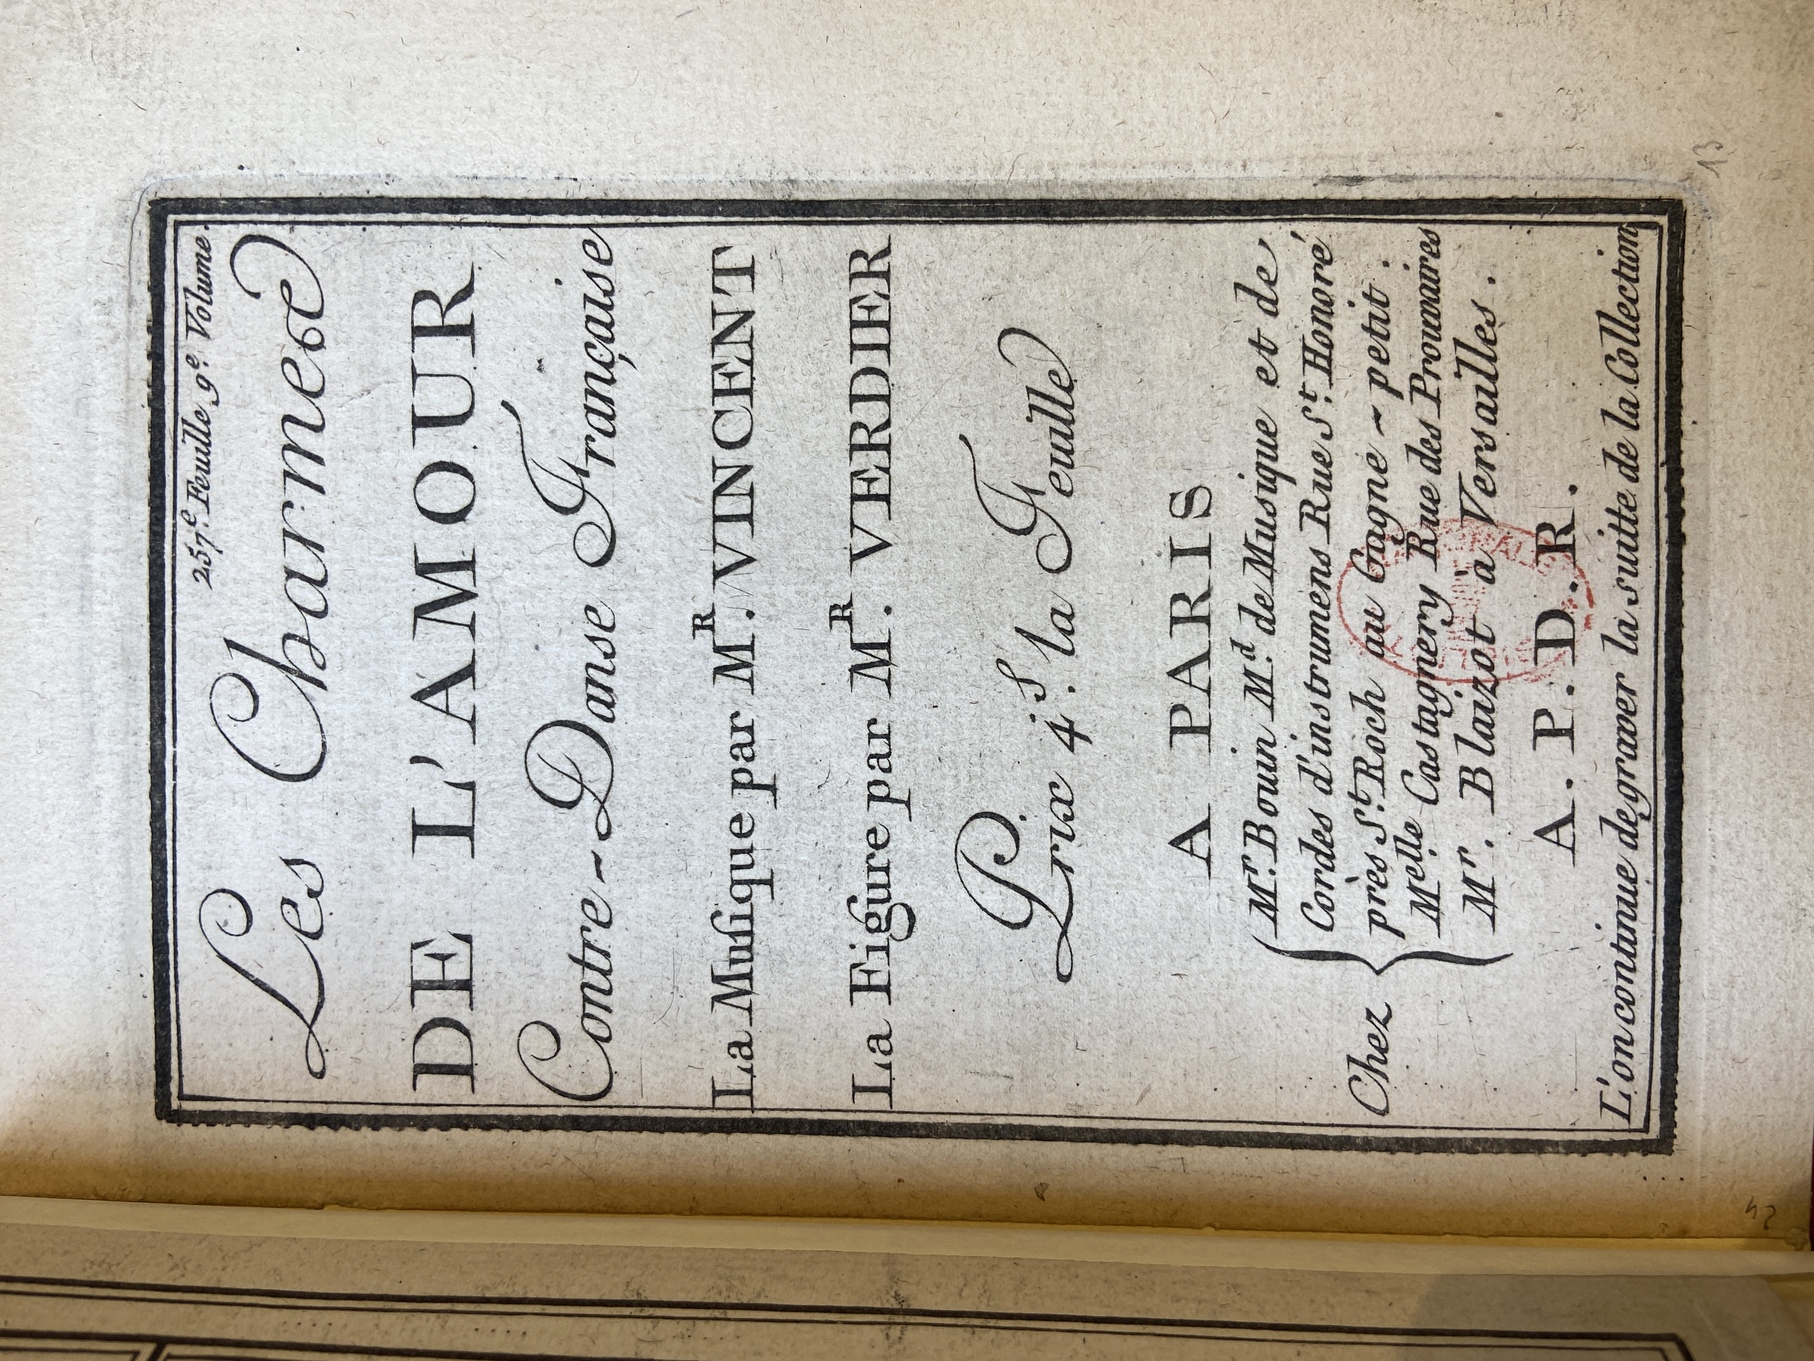 257.e Feuille 9.e Volume.
Les Charmes
DE L'AMOUR
Contre-Danse Française
La Musique par M.R VINCENT
La Figure par M.R VERDIER
Prix 4.s la Feuille
A PARIS
Chez
Mr. Bouin M.d de Musique et de
Cordes d'instrumens Rue S.t Honoré
près S.t Roch au Gagne-petit.
Melle Castagnery Rue des Prouvaires
Mr. Blaizot à Versailles.
A. P. D. R.
L'on continue degraver la suitte de la Collection
13